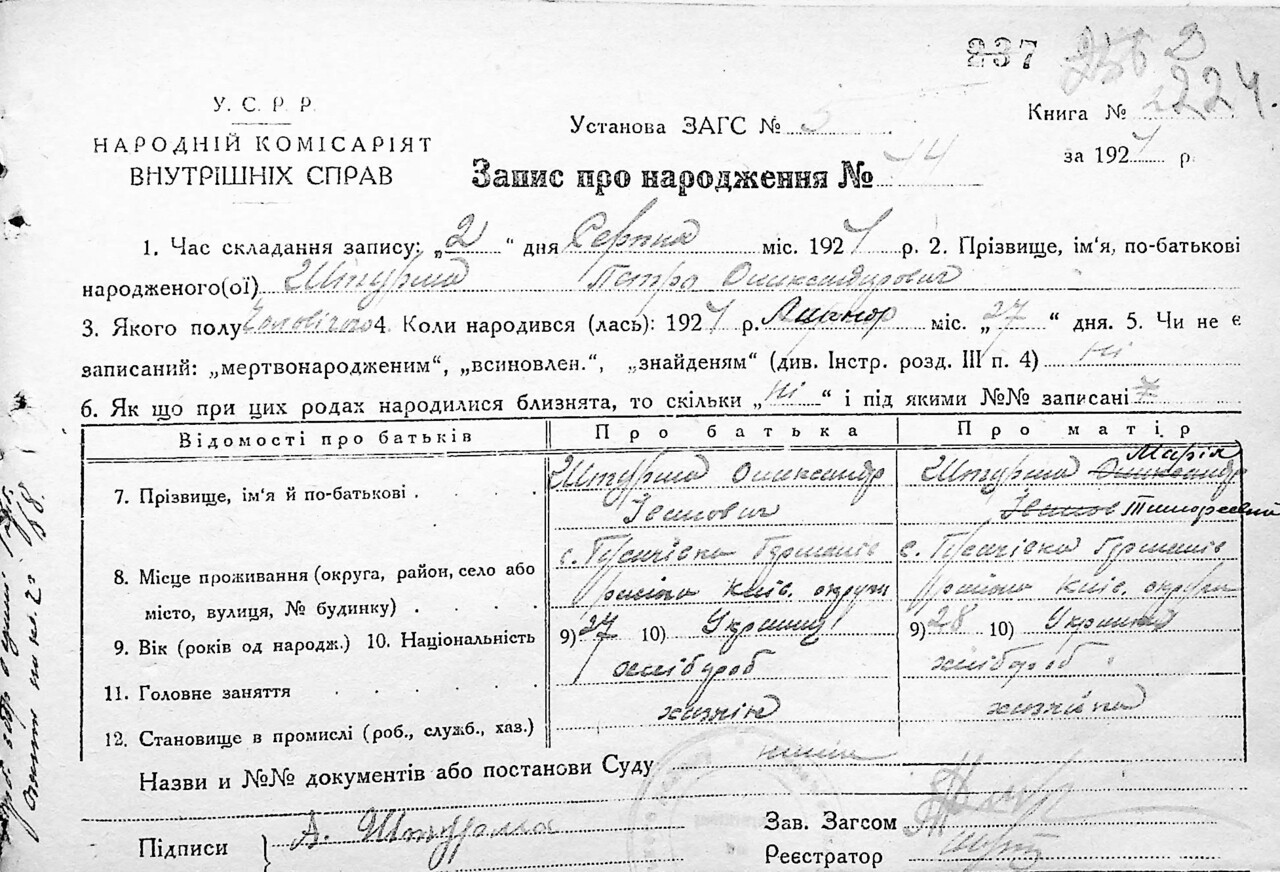 237 2224.
У. С. Р. Р.
НАРОДНІЙ КОМІСАРІЯТ
ВНУТРІШНІХ СПРАВ
Установа ЗАГС № 5
Книга №
за 192 р.
Запис про народження № 44
1. Час складання запису: „2“ дня Серпня міс. 192 р. 2. Прізвище, ім'я, по-батькові
народженого(ої) Штурма Петро Олександрович
3. Якого полу 4. Коли народився (лась): 192 р. міс. „27“ дня. 5. Чи не є
записаний: „мертвонародженим“, „всиновлен.“, „знайденям“ (див. Інстр. розд. III п. 4) ні
6. Як що при цих родах народилися близнята, то скільки „ні“ і під якими №№ записані
Відомості про батьків Про батька Про матір
7. Прізвище, ім'я й по-батькові Штурма Олександр Іванович Штурма Марія
8. Місце проживання (округа, район, село або
місто, вулиця, № будинку) с. Гусачівка района Київ. округи с. Гусачівка района Київ. округи
9. Вік (років од народж.) 10. Національність 9) 27 10) Українц 9) 28 10)
11. Головне заняття хлібороб хлібороб
12. Становище в промислі (роб., служб., хаз.) хазяін хазяйка
Назви и №№ документів або постанови Суду
Підписи А. Штурма
Зав. Загсом
Реєстратор